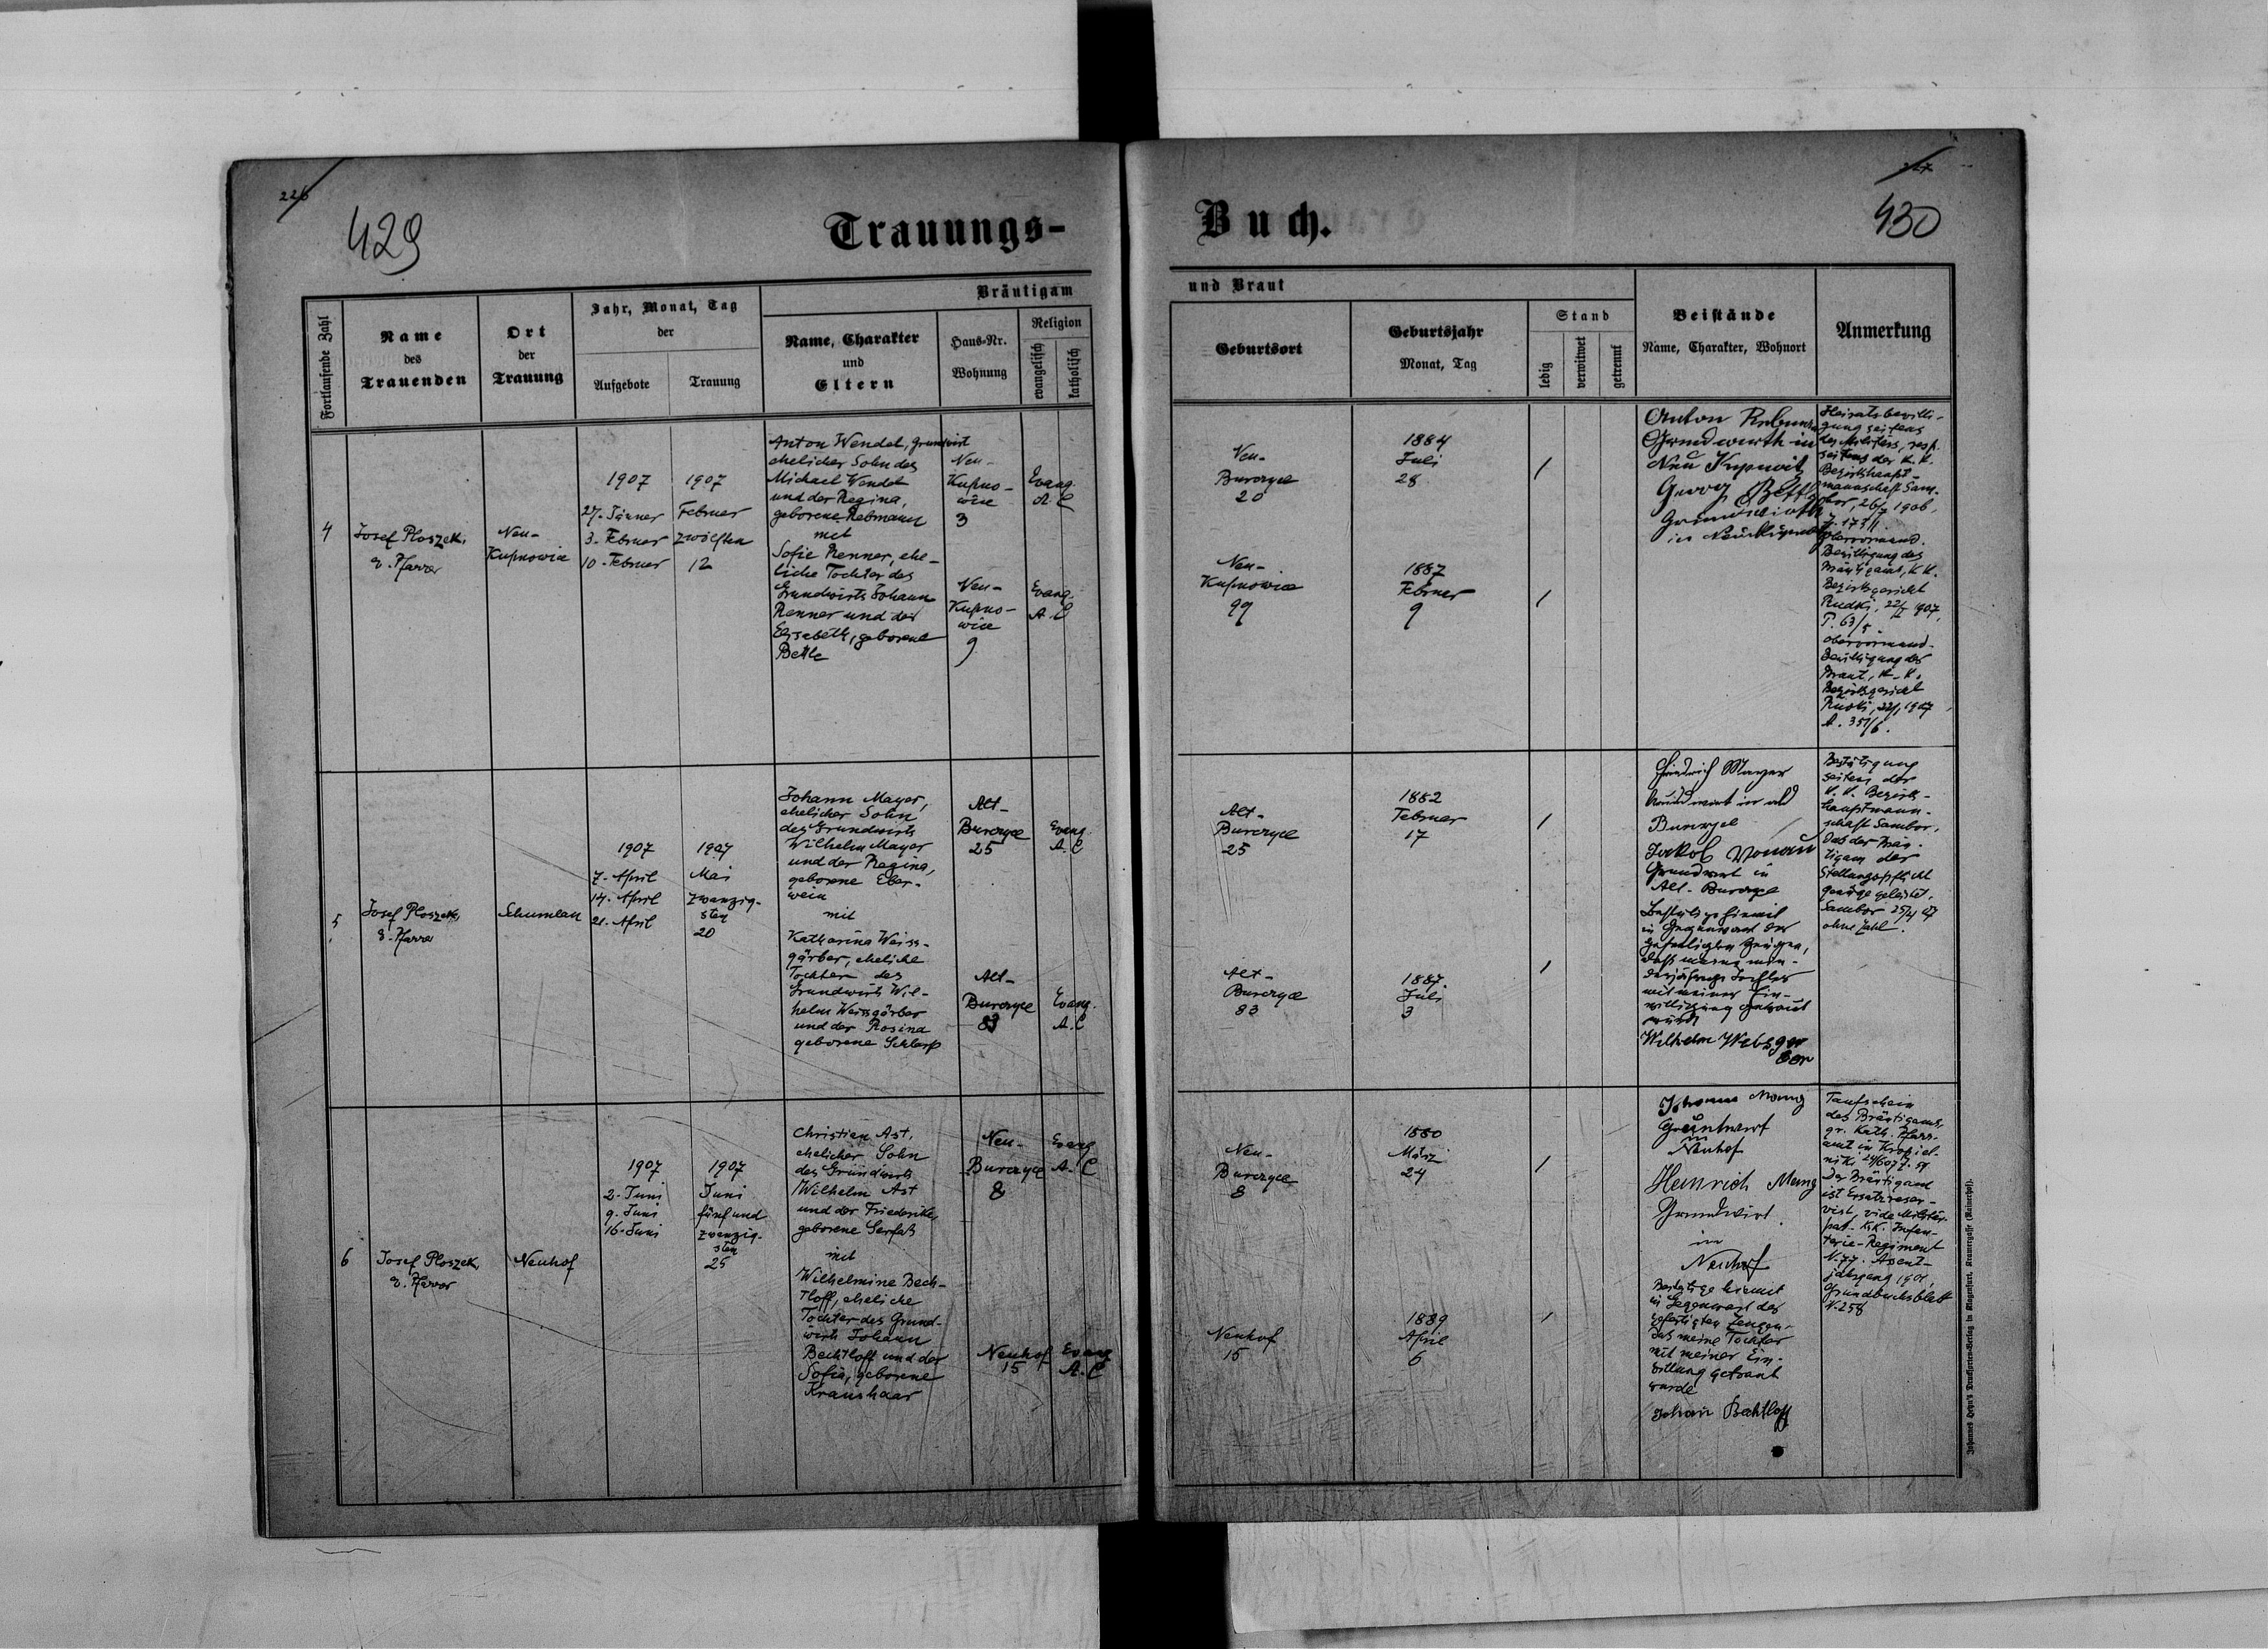 226
429
Trauungs-
Fortlaufende Zahl
Name
des
Trauenden
Ort
der
Trauung
Jahr, Monat, Tag
der
Aufgebote
Trauung
Bräutigam
Name, Charakter
und
Eltern
Haus-Nr.
Wohnung
Religion
evangelisch
katholisch
4
Josef Ploszek,
e. Pfarrer
Neu-
Kupnowice
1907
27. Jänner
3. Februer
10. Februer
1907
Februer
zwölften
12
Anton Wendel, Grundwirt
ehelicher Sohn des
Michael Wendel
und der Regina,
geborene Rebmann
mit
Sofie Renner, ehe-
liche Tochter des
Grundwirts Johann
Renner und der
Elisabeth, geborene
Bettle
Neu-
Kupno-
wice
3
Evang.
A. C
Neu-
Kupno-
wice
9
Evang.
A. C
5
Josef Ploszek,
e. Pfarrer
Schumlau
1907
7. April
14. April
21. April
1907
Mai
zwanzig-
sten
20
Johann Mayer,
ehelicher Sohn
des Grundwirts
Wilhelm Mayer
und der Regina,
geborene Eber-
wein
mit
Katharina Weiss-
gärber, eheliche
Tochter des
Grundwirts Wil-
helm Weissgärber
und der Rosina
geborene Schlarp
Alt-
Burczyce
25
Evang.
A. C
Alt-
Burczyce
83
Evang.
A. C
6
Josef Ploszek,
e. Pfarrer
Neuhof
1907
2. Juni
9. Juni
16. Juni
1907
Juni
fünf und
zwanzig-
sten
25
Christian Ast,
ehelicher Sohn
des Grundwirts
Wilhelm Ast
und der Friederike,
geborene
mit
Wilhelmine Bech-
tloff, eheliche
Tochter des Grund-
wirts Johann
Bechtloff und der
Sofia, geborene
Kraushaar
Neu-
Burczyce
8
Evang
A. C
Neuhof
15
Evang
A. C
227
430
Buch.
und Braut
Geburtsort
Geburtsjahr
Monat, Tag
Stand
ledig
verwitwet
getrennt
Beistände
Name, Charakter, Wohnort
Anmerkung
Neu-
Burczyce
20
1884
Juli
28
/
Neu-
Kupnowice
99
1887
Februer
9
/
Anton
Grundwirth in
Neu Kupnowitz
Georg Bettle
Grundwirth
in
Heiratsbewilli-
gung seitens
des Militärs, resp.
seitens der K. K.
Bezirkshaupt-
mannschaft Sam-
bor, 1906,
Z. 173/1.
obervormund.
Bewilligung des
Bräutigams, K. K.
Bezirksgericht
Rudki, 1907,
P. 63/5
obervormund-
Bewilligung der
Braut, K. K.
Bezirksgericht
Rudki, 1907,
A. 351/6.
Alt-
Burczyce
25
1882
Februer
17
/
Alt-
Burczyce
83
1887.
Juli
3
/
Friedrich Mayer
Grundwirt in alt
Burczyce
Jakob Vonau
Grundwirt in
Alt-Burczyce
Bestätige hiemit
in Gegenwart der
gefertigten Zeugen,
dass meine min-
derjährige Tochter
mit meiner Ein-
willigung getraut
wurde
Wilhelm
Bestätigung
seitens der
K. K. Bezirks-
hauptmann-
schaft Sambor,
Das der Bräu-
tigam der
Stellungspflicht
genüge geleistet.
Sambor 25/4 07
ohne Zahl.
Neu-
Burczyce
8
1880
März
24
/
Neuhof
15
1889
April
6
/
Johann Mang
Grundwirt
in
Neuhof
Heinrich Mang
Grundwirt
in
Neuhof
Bestätige hiemit
in Gegenwart der
gefertigten Zeugen,
Das meine Tochter
mit meiner Ein-
willung getraut
wurde
Johan Bechtloff
Taufschein
des Bräutigams,
gr. Kath. Pfarr-
amt in
Der Bräutigam
ist Ersatzreser-
vist, vide Militär-
pas. K.K. Infan-
terie-Regiment
N. 77. Assent-
jahrgang 1901,
Grundbuchsblatt
N. 258
Johannes Heyn's Drucksorten-Verlag in Klagenfurt, Kramergasse (Rainerhof).